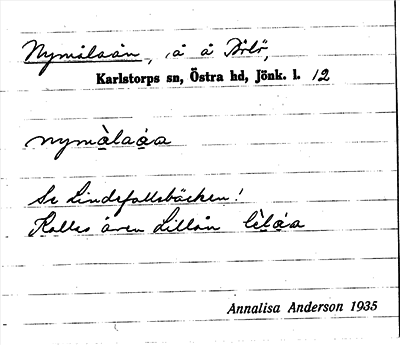 Nymålaån, å å Bölö,
Karlstorps sn, Östra hd, Jönk. l. 12
nymàlaáa
Se Lindefallsbäcken!
Kallas även Lillån lìláa
Annalisa Anderson 1935